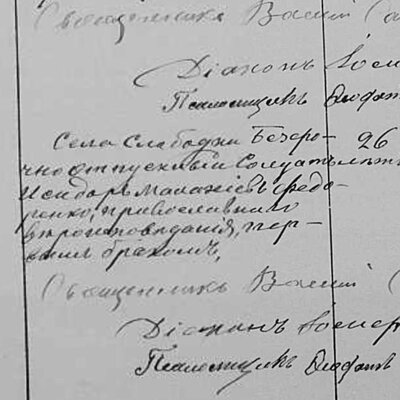 Священникъ Василій
Діаконъ Іосиф
Псаломщикъ Феофан
Села Слабодки Безсро- 26
чно отпускный Солдатъ лѣтъ
Исидоръ Маланіевъ Федо-
ренко, православнаго
вѣроисповѣданія, пер-
вымъ бракомъ,
Священникъ Василій
Діаконъ Іосиф
Псаломщикъ Феофан